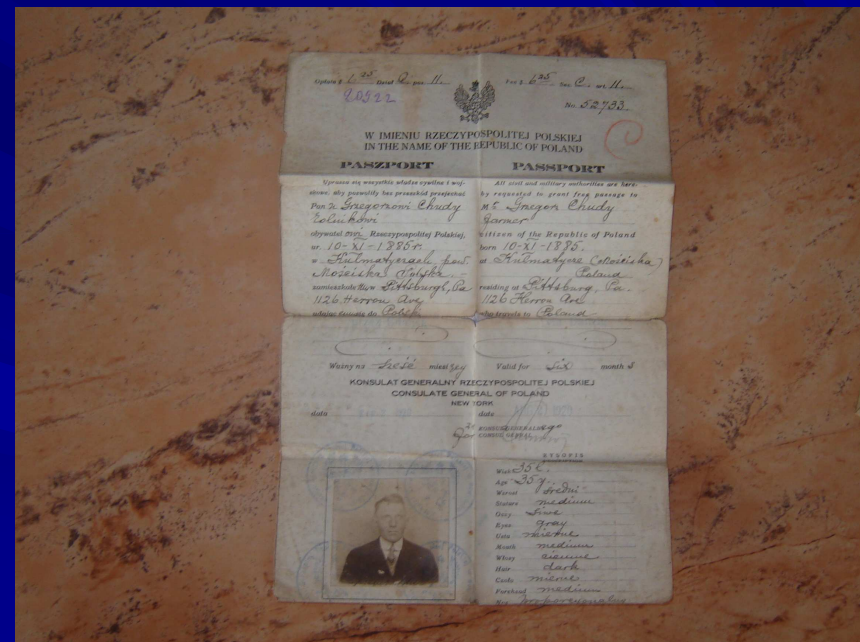 Opłata $ 6 25 Dział C. poz. 11. Fee $ 6 25 Sec. C. art. 11.
20522
No. 52733
W IMIENIU RZECZYPOSPOLITEJ POLSKIEJ
IN THE NAME OF THE REPUBLIC OF POLAND
PASZPORT PASSPORT
Uprasza się wszystkie władze cywilne i woj-
skowe, aby pozwoliły bez przeszkód przejechać
Pan u Grzegorzowi Chudy
rolnikowi
obywatel owi Rzeczypospolitej Polskiej,
ur. 10-XI-1885 r.
w Kulmatyczach pow.
Mościska Polska
zamieszkały w Pittsburgh, Pa
1126 Herron Ave
do Polski
All civil and military authorities are here-
by requested to grant free passage to
M r. Grzegorz Chudy
farmer
citizen of the Republic of Poland
born 10-XI-1885.
at Kulmatycze (Mościska)
Poland
residing at Pittsburg, Pa.
1126 Herron Ave
who travels to Poland
Ważny na sześć miesięcy Valid for six month s
KONSULAT GENERALNY RZECZYPOSPOLITEJ POLSKIEJ
CONSULATE GENERAL OF POLAND
NEW YORK
data date
For CONSUL GENERAL
RYSOPIS
Wiek 35 l.
Age 35 y.
Wzrost średni
Stature medium
Oczy siwe
Eyes gray
Usta mierne
Mouth medium
Włosy ciemne
Hair dark
Czoło mierne
Forehead medium
Nos proporcjonalny